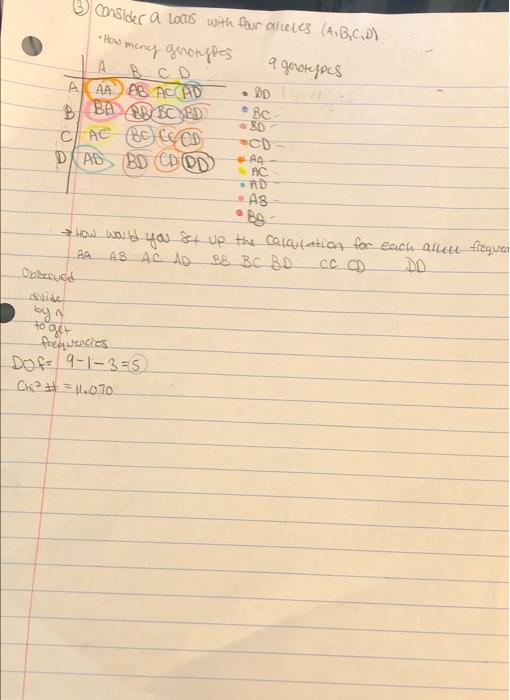 ③ Consider a locus with four alleles (A,B,C,D)
• How many genotypes
9 genotypes
A B C D
A AA AB AC AD
B BA BB BC BD
C AC BC CC CD
D AD BD CD DD
• DD
• BC -
• BD -
• CD -
• AA -
• AC -
• AD -
• AB
• BB -
→ How would you set up the calculation for each allele frequen
AA AB AC AD BB BC BD CC CD DD
Observed
divide
by n
to get
frequencies
DOF = 9-1-3=5
Chi² # = 11.070